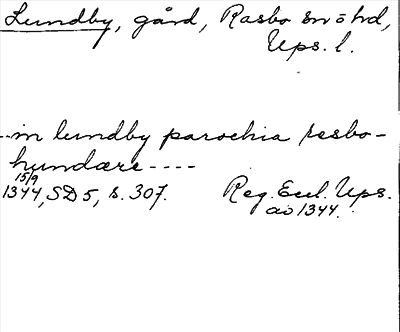 Lundby, gård, Rasbo sn ö hd,
Ups. l.
--in lundby parochia resbo-
hundære ----
15/9
1344, SD 5, s. 307.
Reg. Eccl. Ups.
ao 1344.